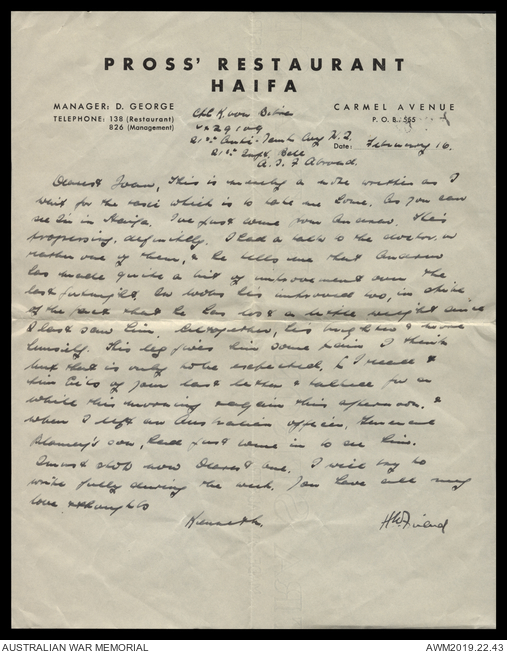 PROSS' RESTAURANT
HAIFA
MANAGER: D. GEORGE
CARMEL AVENUE
TELEPHONE: 138 (Restaurant)
826 (Management)
P. O. B. 555
Cpl K. von Bibra
VX29109
21st Anti-Tank Coy
Date: February 16.
21st Bde
A.I.F Abroad.
Dearest Joan, This is merely a note written as I
wait for the taxi which is to take me home. As you can
see I'm in Haifa. I've just come from Andrew. He's
progressing, definitely. I had a talk to the doctor, or
rather one of them, & he tells me that Andrew
has made quite a bit of improvement over the
last fortnight. He looks improved too, in spite
of the fact that he has lost a little weight since
I last saw him. Altogether, he's brighter & more
himself. His leg gives him some pain I think
but that is only to be expected. I read
him bits of your last letter & talked for a
while this morning & again this afternoon. &
when I left an Australian officer, General
Blamey's son, had just come in to see him.
I must stop now Dearest one. I will try to
write fully during the week. You have all my
love & thoughts
Kenneth.
AUSTRALIAN WAR MEMORIAL
AWM2019.22.43